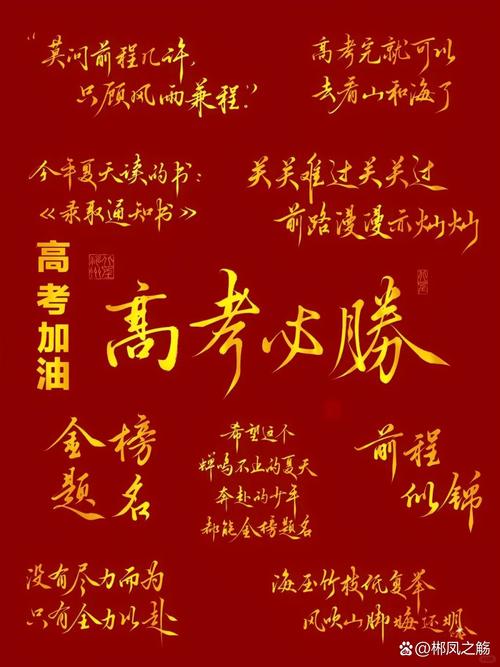 “莫问前程几许，
只顾风雨兼程.”
高考完就可以
去看山和海了
今年夏天读的书：
《录取通知书》
关关难过关关过
前路漫漫亦灿灿
高考加油
高考必勝
金榜
题名
希望这个
蝉鸣不止的夏天
奔赴的少年
都能金榜题名
前程
似锦
没有尽力而为
只有全力以赴
海压竹枝低复举
风吹山脚晦还明
@郴凤之觞